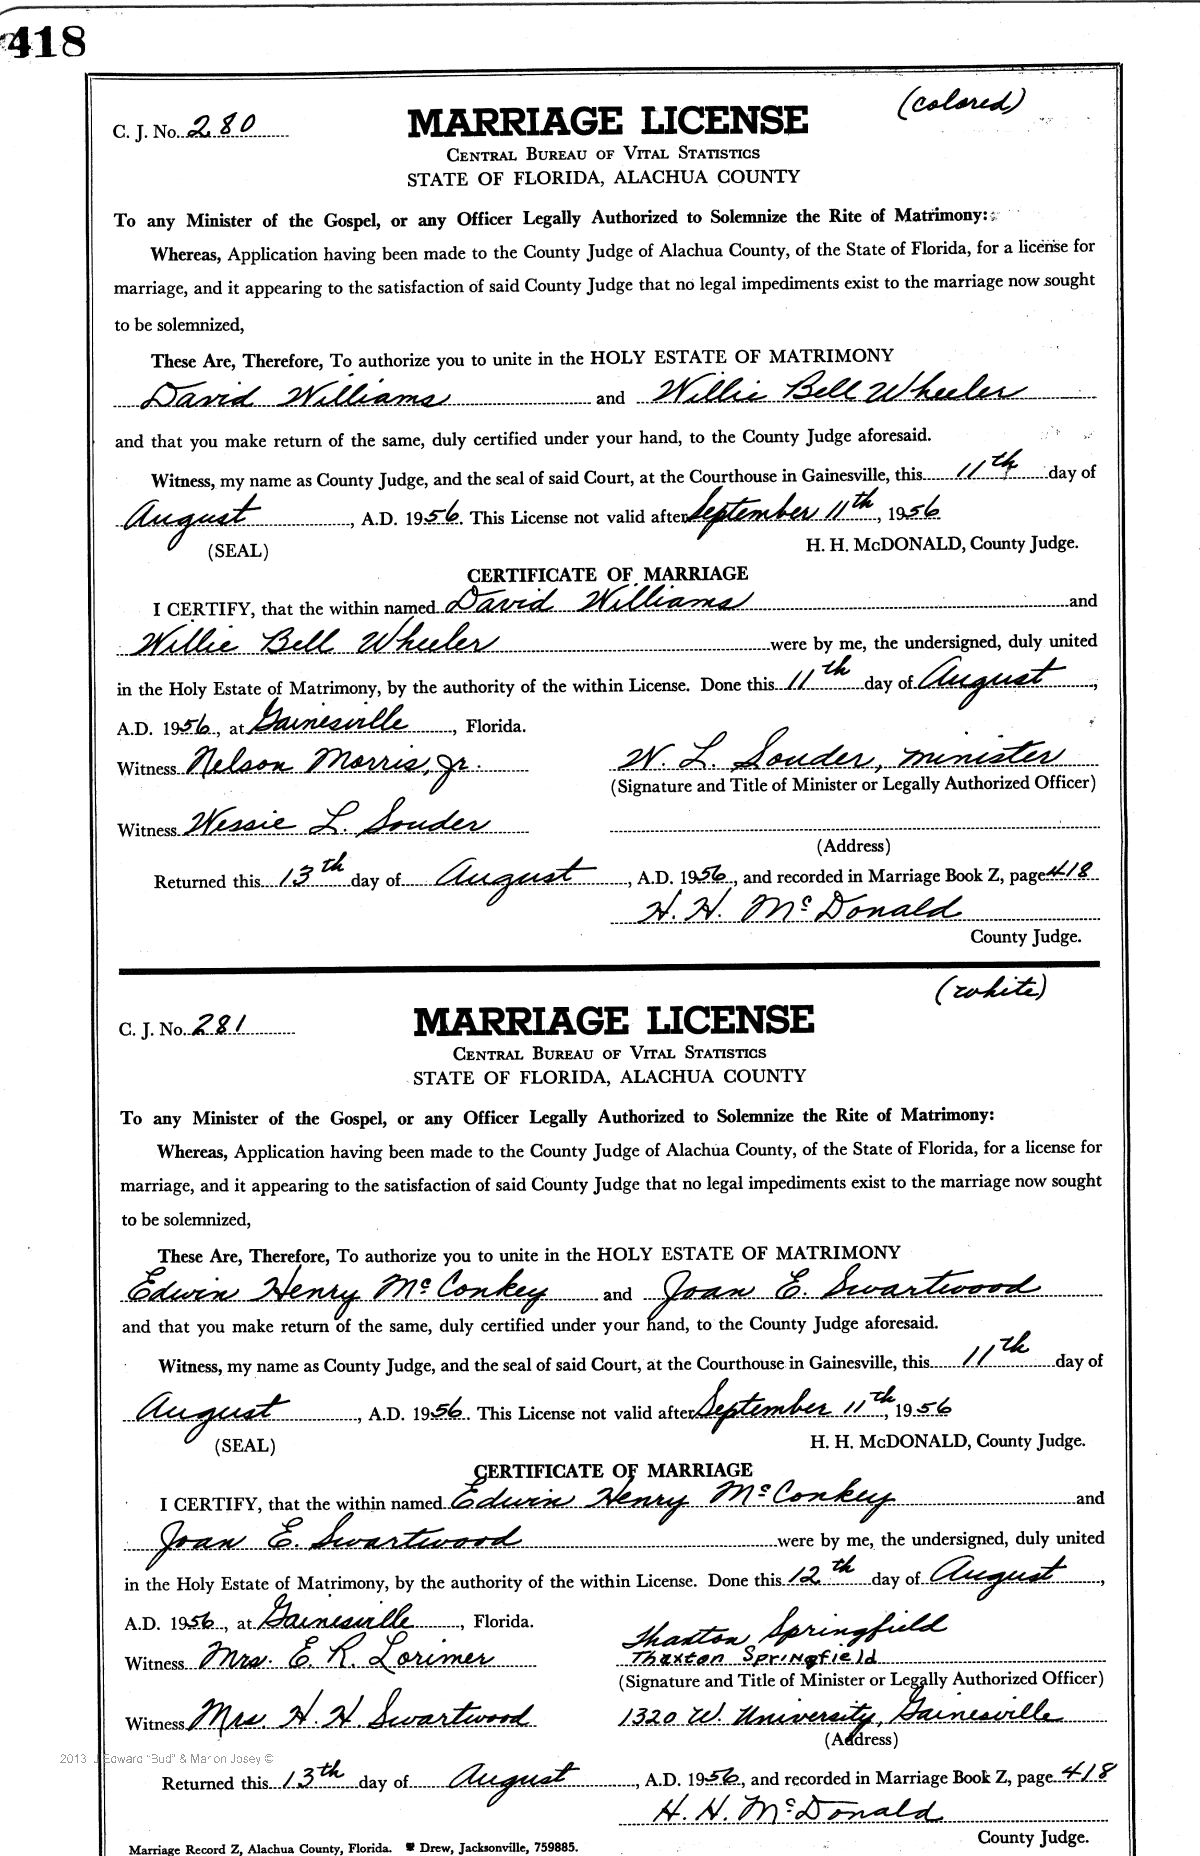 418
(colored)
C. J. No. 280
MARRIAGE LICENSE
CENTRAL BUREAU OF VITAL STATISTICS
STATE OF FLORIDA, ALACHUA COUNTY
To any Minister of the Gospel, or any Officer Legally Authorized to Solemnize the Rite of Matrimony:
Whereas, Application having been made to the County Judge of Alachua County, of the State of Florida, for a license for
marriage, and it appearing to the satisfaction of said County Judge that no legal impediments exist to the marriage now sought
to be solemnized,
These Are, Therefore, To authorize you to unite in the HOLY ESTATE OF MATRIMONY
David Williams and Willie Bell Wheeler
and that you make return of the same, duly certified under your hand, to the County Judge aforesaid.
Witness, my name as County Judge, and the seal of said Court, at the Courthouse in Gainesville, this 11th day of
August, A.D. 1956. This License not valid after September 11th, 1956
(SEAL) H. H. McDONALD, County Judge.
CERTIFICATE OF MARRIAGE
I CERTIFY, that the within named David Williams and
Willie Bell Wheeler were by me, the undersigned, duly united
in the Holy Estate of Matrimony, by the authority of the within License. Done this 11th day of August,
A.D. 1956, at Gainesville, Florida.
Witness Nelson Morris, Jr. W. L. Souder, minister
(Signature and Title of Minister or Legally Authorized Officer)
Witness Wessie L. Souder
(Address)
Returned this 13th day of August, A.D. 1956, and recorded in Marriage Book Z, page 418
H. H. McDonald
County Judge.
(white)
C. J. No. 281
MARRIAGE LICENSE
CENTRAL BUREAU OF VITAL STATISTICS
STATE OF FLORIDA, ALACHUA COUNTY
To any Minister of the Gospel, or any Officer Legally Authorized to Solemnize the Rite of Matrimony:
Whereas, Application having been made to the County Judge of Alachua County, of the State of Florida, for a license for
marriage, and it appearing to the satisfaction of said County Judge that no legal impediments exist to the marriage now sought
to be solemnized,
These Are, Therefore, To authorize you to unite in the HOLY ESTATE OF MATRIMONY
Edwin Henry McConkey and Joan E. Swartwood
and that you make return of the same, duly certified under your hand, to the County Judge aforesaid.
Witness, my name as County Judge, and the seal of said Court, at the Courthouse in Gainesville, this 11th day of
August, A.D. 1956. This License not valid after September 11th, 1956
(SEAL) H. H. McDONALD, County Judge.
CERTIFICATE OF MARRIAGE
I CERTIFY, that the within named Edwin Henry McConkey and
Joan E. Swartwood were by me, the undersigned, duly united
in the Holy Estate of Matrimony, by the authority of the within License. Done this 12th day of August,
A.D. 1956, at Gainesville, Florida.
Thaxton Springfield
Witness Mrs. E. R. Lorimer Thaxton Springfield
(Signature and Title of Minister or Legally Authorized Officer)
Witness Mrs. H. H. Swartwood 1320 W. University, Gainesville
(Address)
2013 J Edward "Bud" & Marion Josey ©
Returned this 13th day of August, A.D. 1956, and recorded in Marriage Book Z, page 418
H. H. McDonald
County Judge.
Marriage Record Z, Alachua County, Florida. Drew, Jacksonville, 759885.